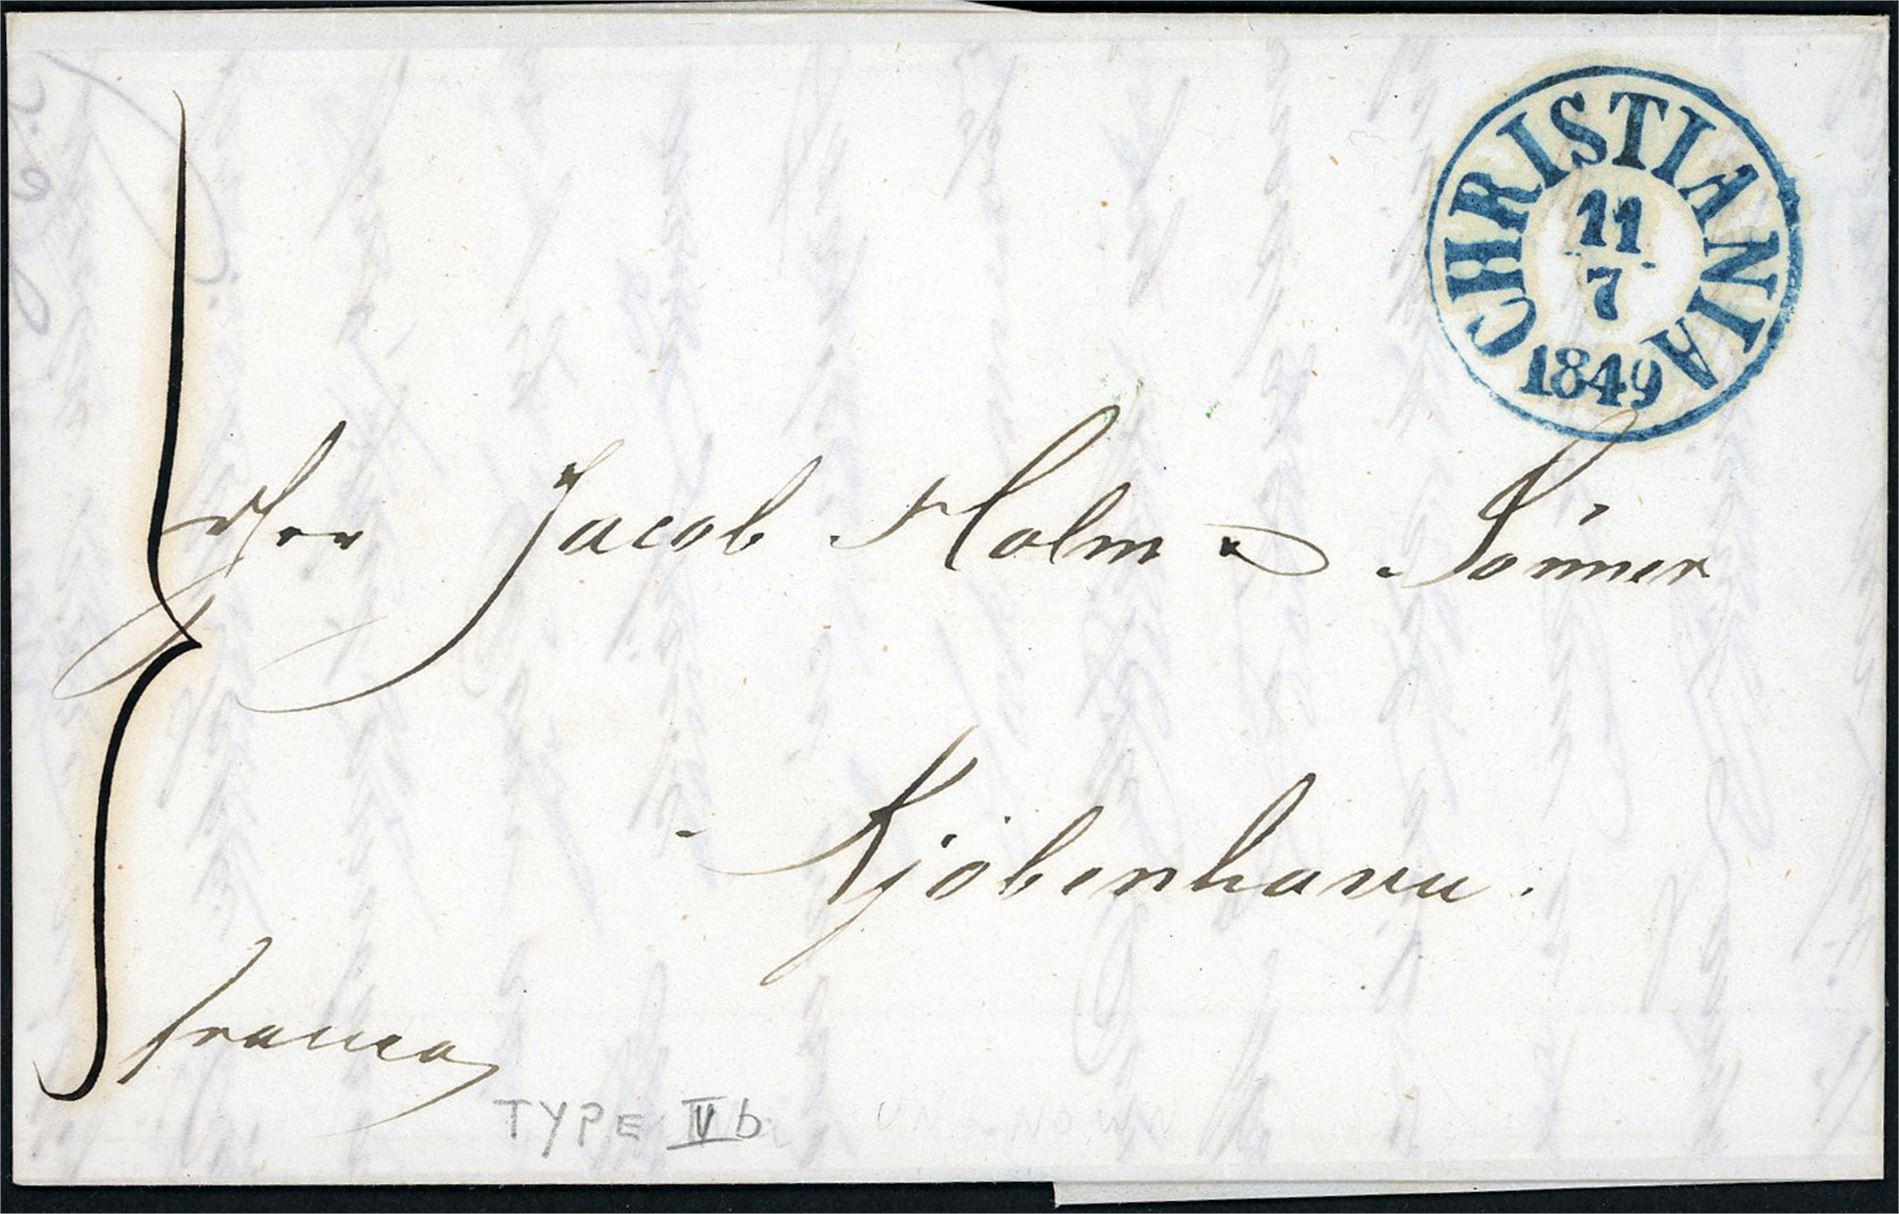 CHRISTIANIA
11
7
1849
Herr Jacob Holm & Sönner
Kjöbenhavn.
franco
TYPE IV b
UNKNOWN